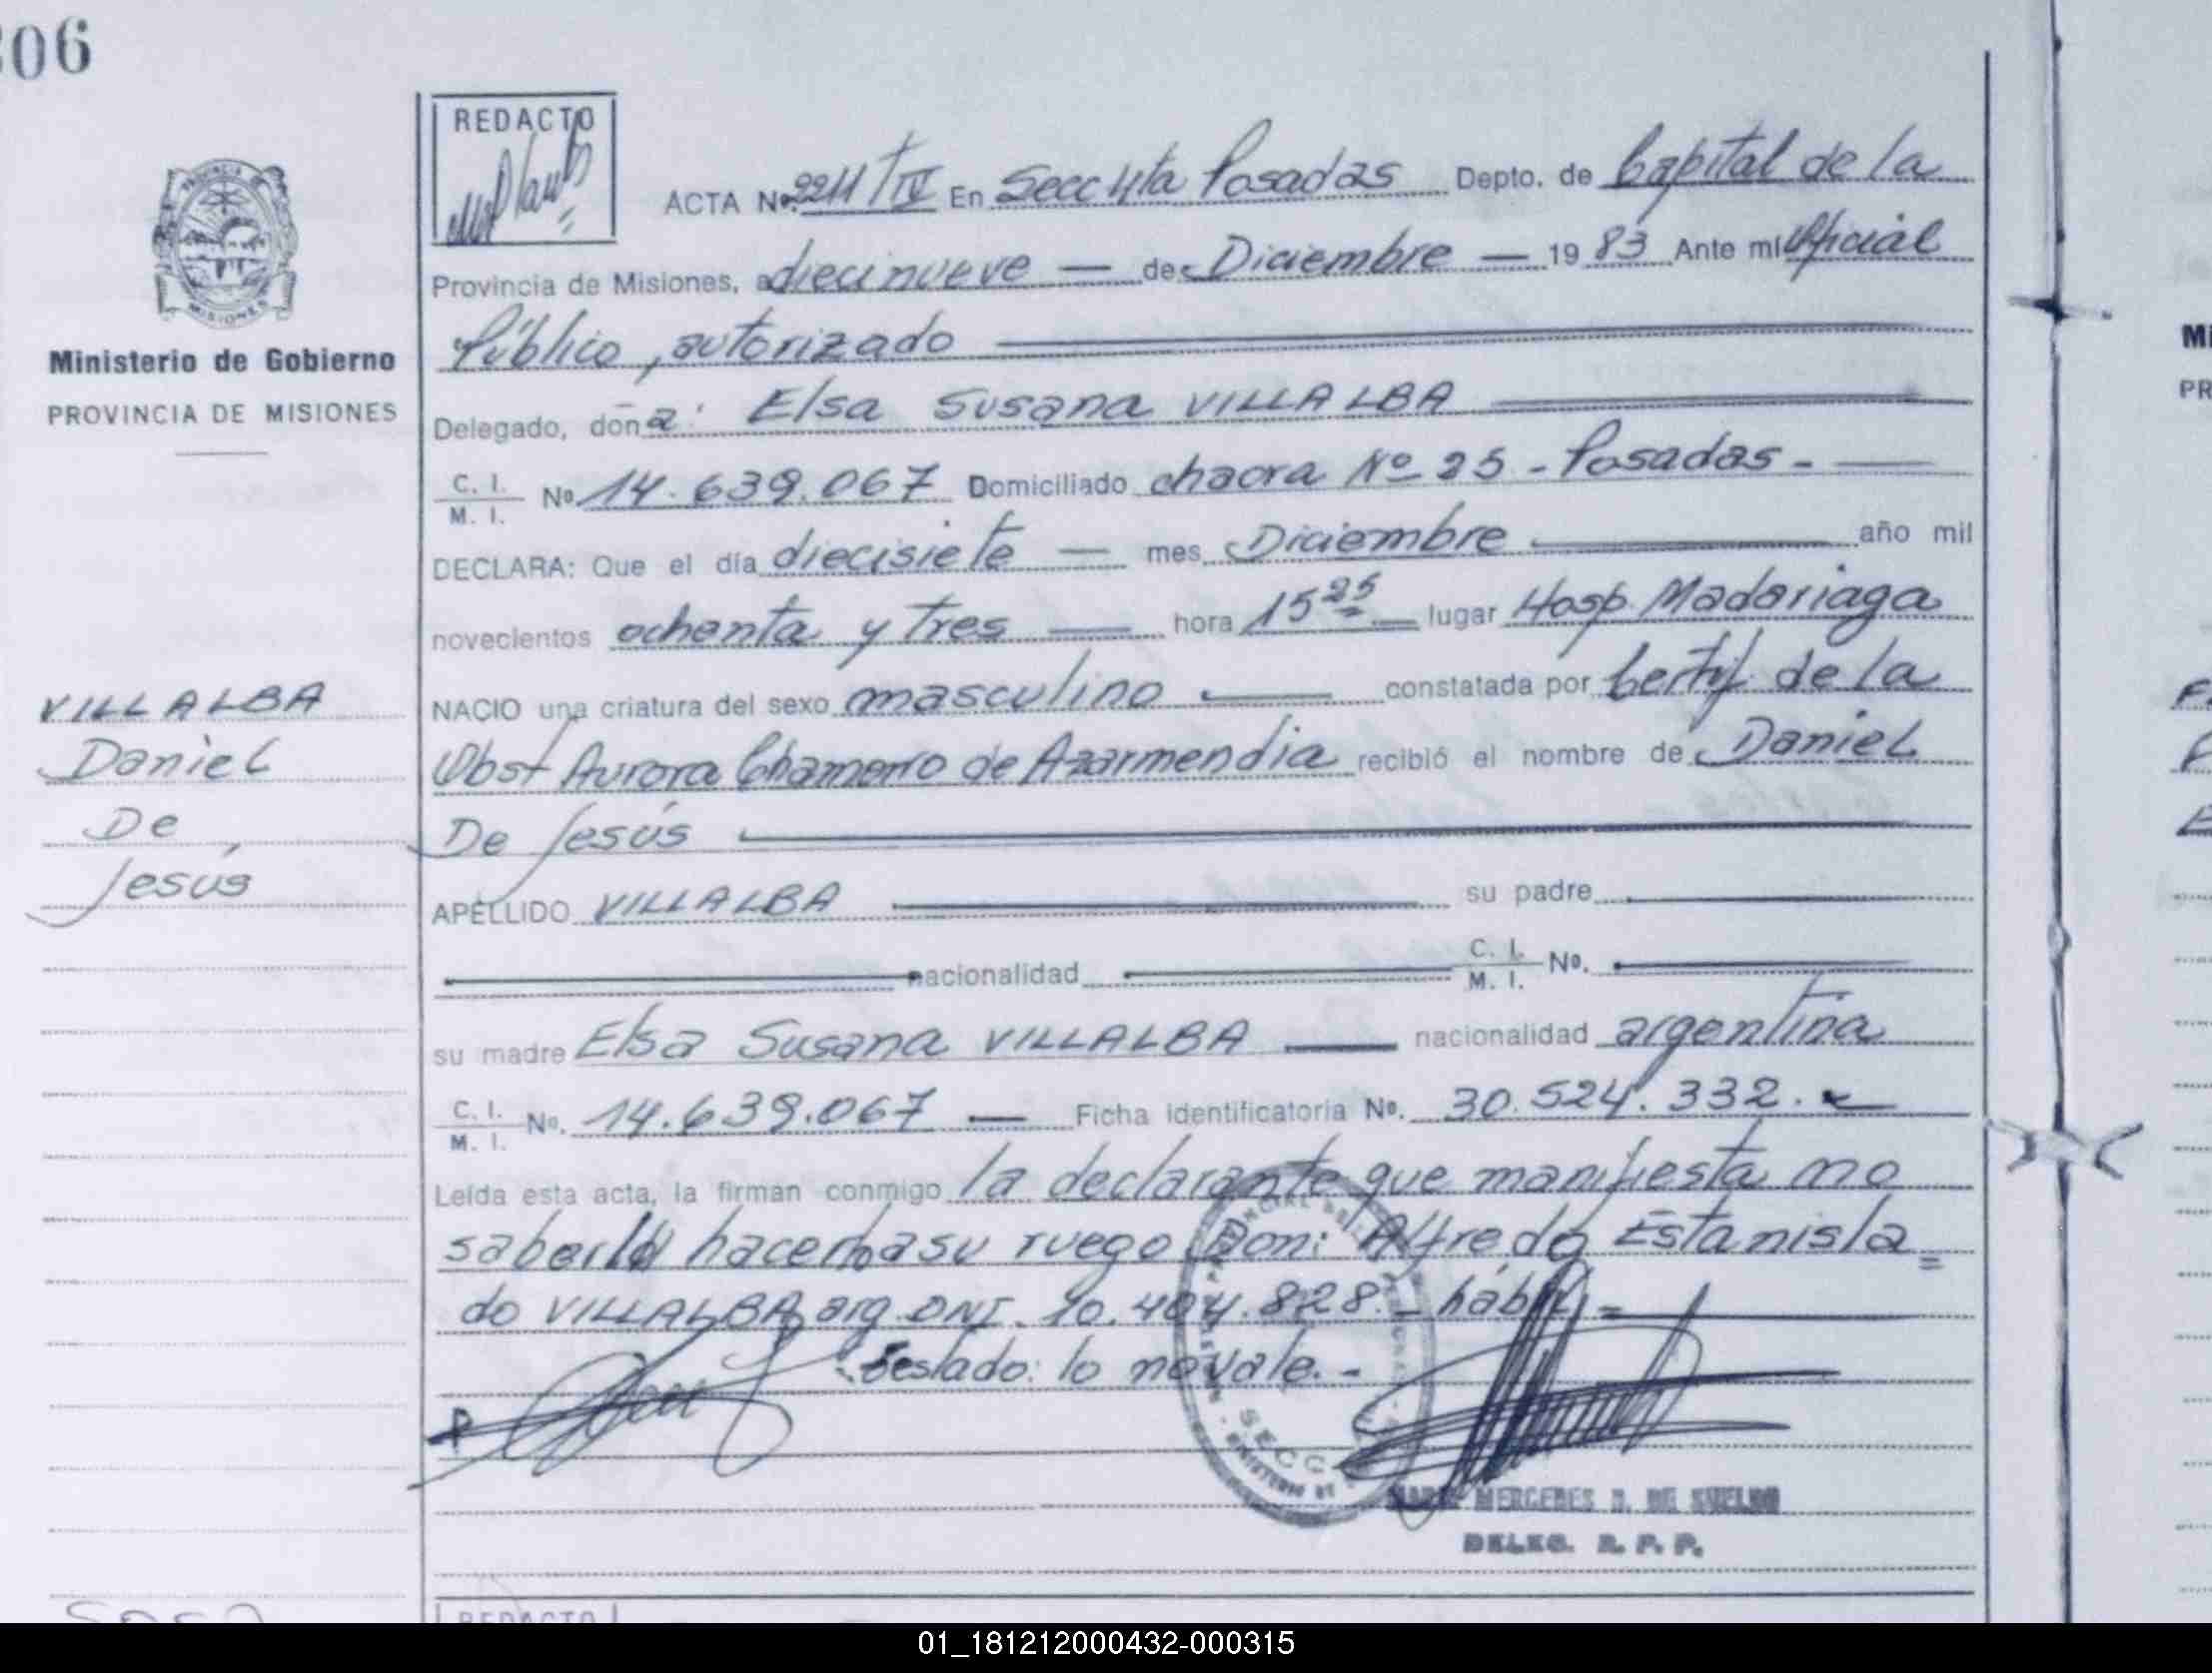 306
REDACTO
ACTA Nº 2211/IV En Secc 4ta Posadas Depto. de Capital de la
Provincia de Misiones, a diecinueve — de Diciembre — 1983 Ante mi Oficial
Público, autorizado
Delegado, doña: Elsa Susana VILLALBA
C. I.
M. I. Nº 14.639.067 Domiciliado chacra Nº 25 - Posadas -
DECLARA: Que el día diecisiete — mes Diciembre año mil
novecientos ochenta y tres — hora 15 25 lugar Hosp Madariaga
NACIO una criatura del sexo masculino constatada por Certif de la
Obst Aurora Chamorro de Azarmendia recibió el nombre de Daniel
De Jesús
APELLIDO VILLALBA su padre
nacionalidad C. I.
M. I. Nº.
su madre Elsa Susana VILLALBA nacionalidad argentina
C. I.
M. I. Nº. 14.639.067 — Ficha identificatoria Nº. 30.524.332.
Leída esta acta, la firman conmigo la declarante que manifiesta no
saberlo hacer a su ruego Don: Alfredo Estanisla=
do VILLALBA arg DNI. 10.404.828.- hábil -
Testado: lo no vale.-
MERCEDES
DELEG. R. P. P.
PROVINCIA DE
MISIONES
Ministerio de Gobierno
PROVINCIA DE MISIONES
VILLALBA
Daniel
De
Jesús
REDACTO
01_181212000432-000315